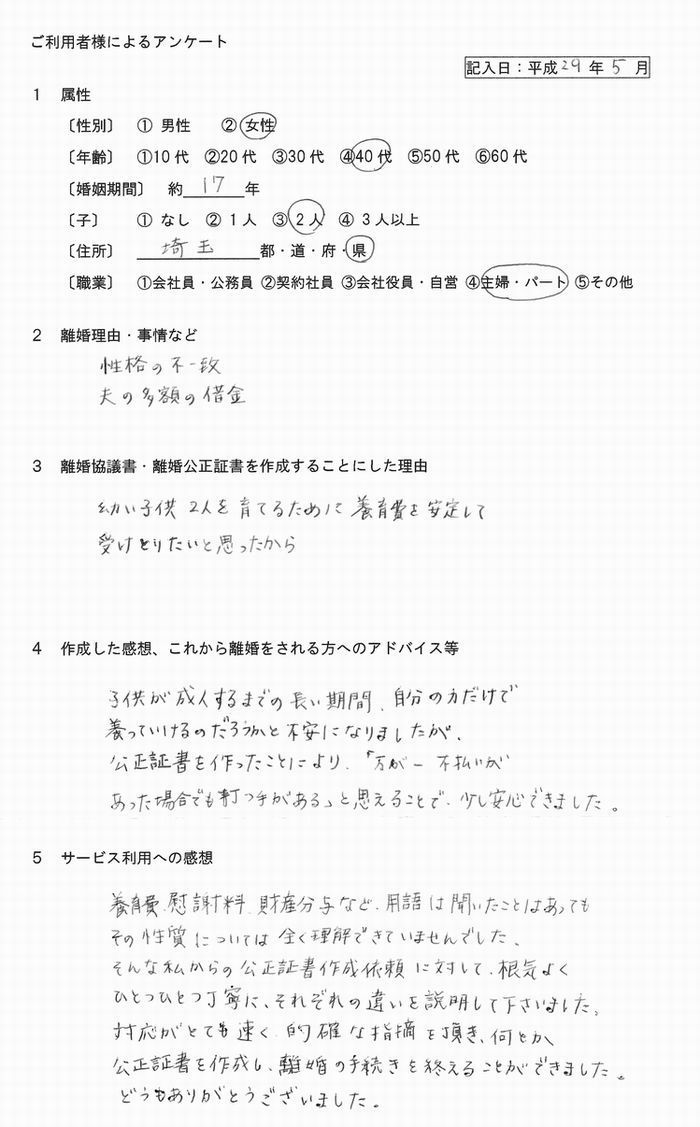 ご利用者様によるアンケート
記入日：平成29年5月
1 属性
〔性別〕 ① 男性 ② 女性
〔年齢〕 ①10代 ②20代 ③30代 ④40代 ⑤50代 ⑥60代
〔婚姻期間〕 約17年
〔子〕 ① なし ② 1人 ③ 2人 ④ 3人以上
〔住所〕 埼玉都・道・府・県
〔職業〕 ①会社員・公務員 ②契約社員 ③会社役員・自営 ④主婦・パート ⑤その他
2 離婚理由・事情など
性格の不一致
夫の多額の借金
3 離婚協議書・離婚公正証書を作成することにした理由
幼い子供2人を育てるために養育費を安定して
受けとりたいと思ったから
4 作成した感想、これから離婚をされる方へのアドバイス等
子供が成人するまでの長い期間、自分の力だけで
養っていけるのだろうかと不安になりましたが、
公正証書を作ったことにより、「万が一不払いが
あった場合でも打つ手がある」と思えることで、少し安心できました。
5 サービス利用への感想
養育費、慰謝料、財産分与など、用語は聞いたことはあっても
その性質については全く理解できていませんでした。
そんな私からの公正証書作成依頼に対して、根気よく
ひとつひとつ丁寧に、それぞれの違いを説明して下さいました。
対応がとても速く、的確な指摘を頂き、何とか
公正証書を作成し、離婚の手続きを終えることができました。
どうもありがとうございました。